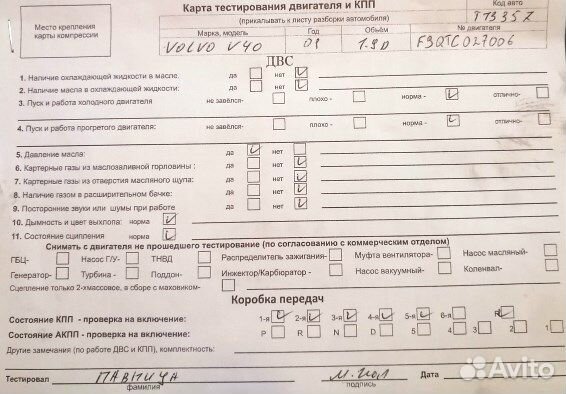 Карта тестирования двигателя и КПП
Код авто
Место крепления карты компрессии
(прикалывать к листу разборки автомобиля)
TT335Z
Марка, модель
Год
Объём
№ двигателя
VOLVO V40
01
1.9D
F9QTC027006
ДВС
1. Наличие охлаждающей жидкости в масле. да нет V
2. Наличие масла в охлаждающей жидкости: да нет V
3. Пуск и работа холодного двигателя не завелся- плохо - норма - V отлично-
4. Пуск и работа прогретого двигателя: не завелся- плохо - норма - V отлично-
5. Давление масла: да V нет
6. Картерные газы из маслозаливной горловины : да нет V
7. Картерные газы из отверстия масляного щупа: да нет V
8. Наличие газом в расширительном бачке: да нет V
9. Посторонние звуки или шумы при работе да нет V
10. Дымность и цвет выхлопа: норма V
11. Состояние сцепления норма V
Снимать с двигателя не прошедшего тестирование (по согласованию с коммерческим отделом)
ГБЦ- Насос Г/У- ТНВД Распределитель зажигания- Муфта вентилятора- Насос масляный-
Генератор- Турбина - Поддон- Инжектор/Карбюратор - Насос вакуумный- Коленвал-
Сцепление только 2-хмассовое, в сборе с маховиком-
Коробка передач
Состояние КПП - проверка на включение: 1-я V 2-я V 3-я V 4-я V 5-я V 6-я R V
Состояние АКПП - проверка на включение: P R N D 5 4 3 2 1
Другие замечания (по работе ДВС и КПП), комплектность:
Тестировал
фамилия
подпись
Дата
Avito